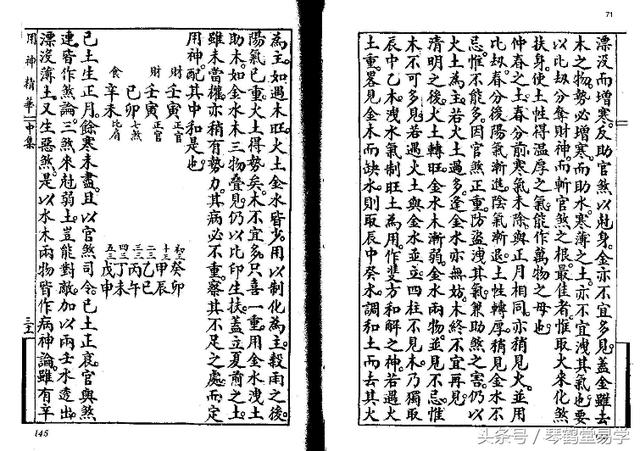 71
漂沒而增寒反助官煞以剋身金亦不宜多見蓋金雖去
木之物勢必增寒而助水寒薄之土亦不宜洩其氣也要
以比刼分奪財神而斬官煞之根最佳者惟取火來化煞
扶身使土性得溫厚之氣能作萬物之母也
仲春之土春分前寒氣未除與正月相同亦稍見火並用
比刼春分後陽氣漸進陰氣漸退土性轉厚稍見金水不
忌惟不能多因官煞正重防盜洩其氣兼助煞之害仍以
火土為主若火土過多逢金水亦無妨木終不宜再見
清明之後火土轉旺金水木漸弱金水兩物並見不忌惟
木不可多見若遇火土與金水並立四柱不見木乃獨取
辰中乙木洩水氣制旺土為用作雙方和解之神若遇火
土重畧見金木而缺水則取辰中癸水調和土而去其火
為主如遇木旺火土金水皆少用以制化為主穀雨之後
陽氣已重火土得勢矣木不宜多只喜一重用金水洩土
助木如金水木三物疊見仍以比印生扶蓋立夏前之土
雖未當權亦稍有勢力其病必不重察其不足之處而定
用神配其中和是也
財壬寅正官
財壬寅正官
己卯七煞
食辛未比肩
初三癸卯
十三甲辰
二三乙巳
三三丙午
四三丁未
五三戊申
己土生正月餘寒未盡且以官煞司令己土正衰官與煞
連皆作煞論三煞來剋弱土豈能對敵加以兩壬水透出
漂沒薄土又生惡煞是以水木兩物皆作病神論雖有辛
用神精華 中集
145
头条号/琴鹤堂易学